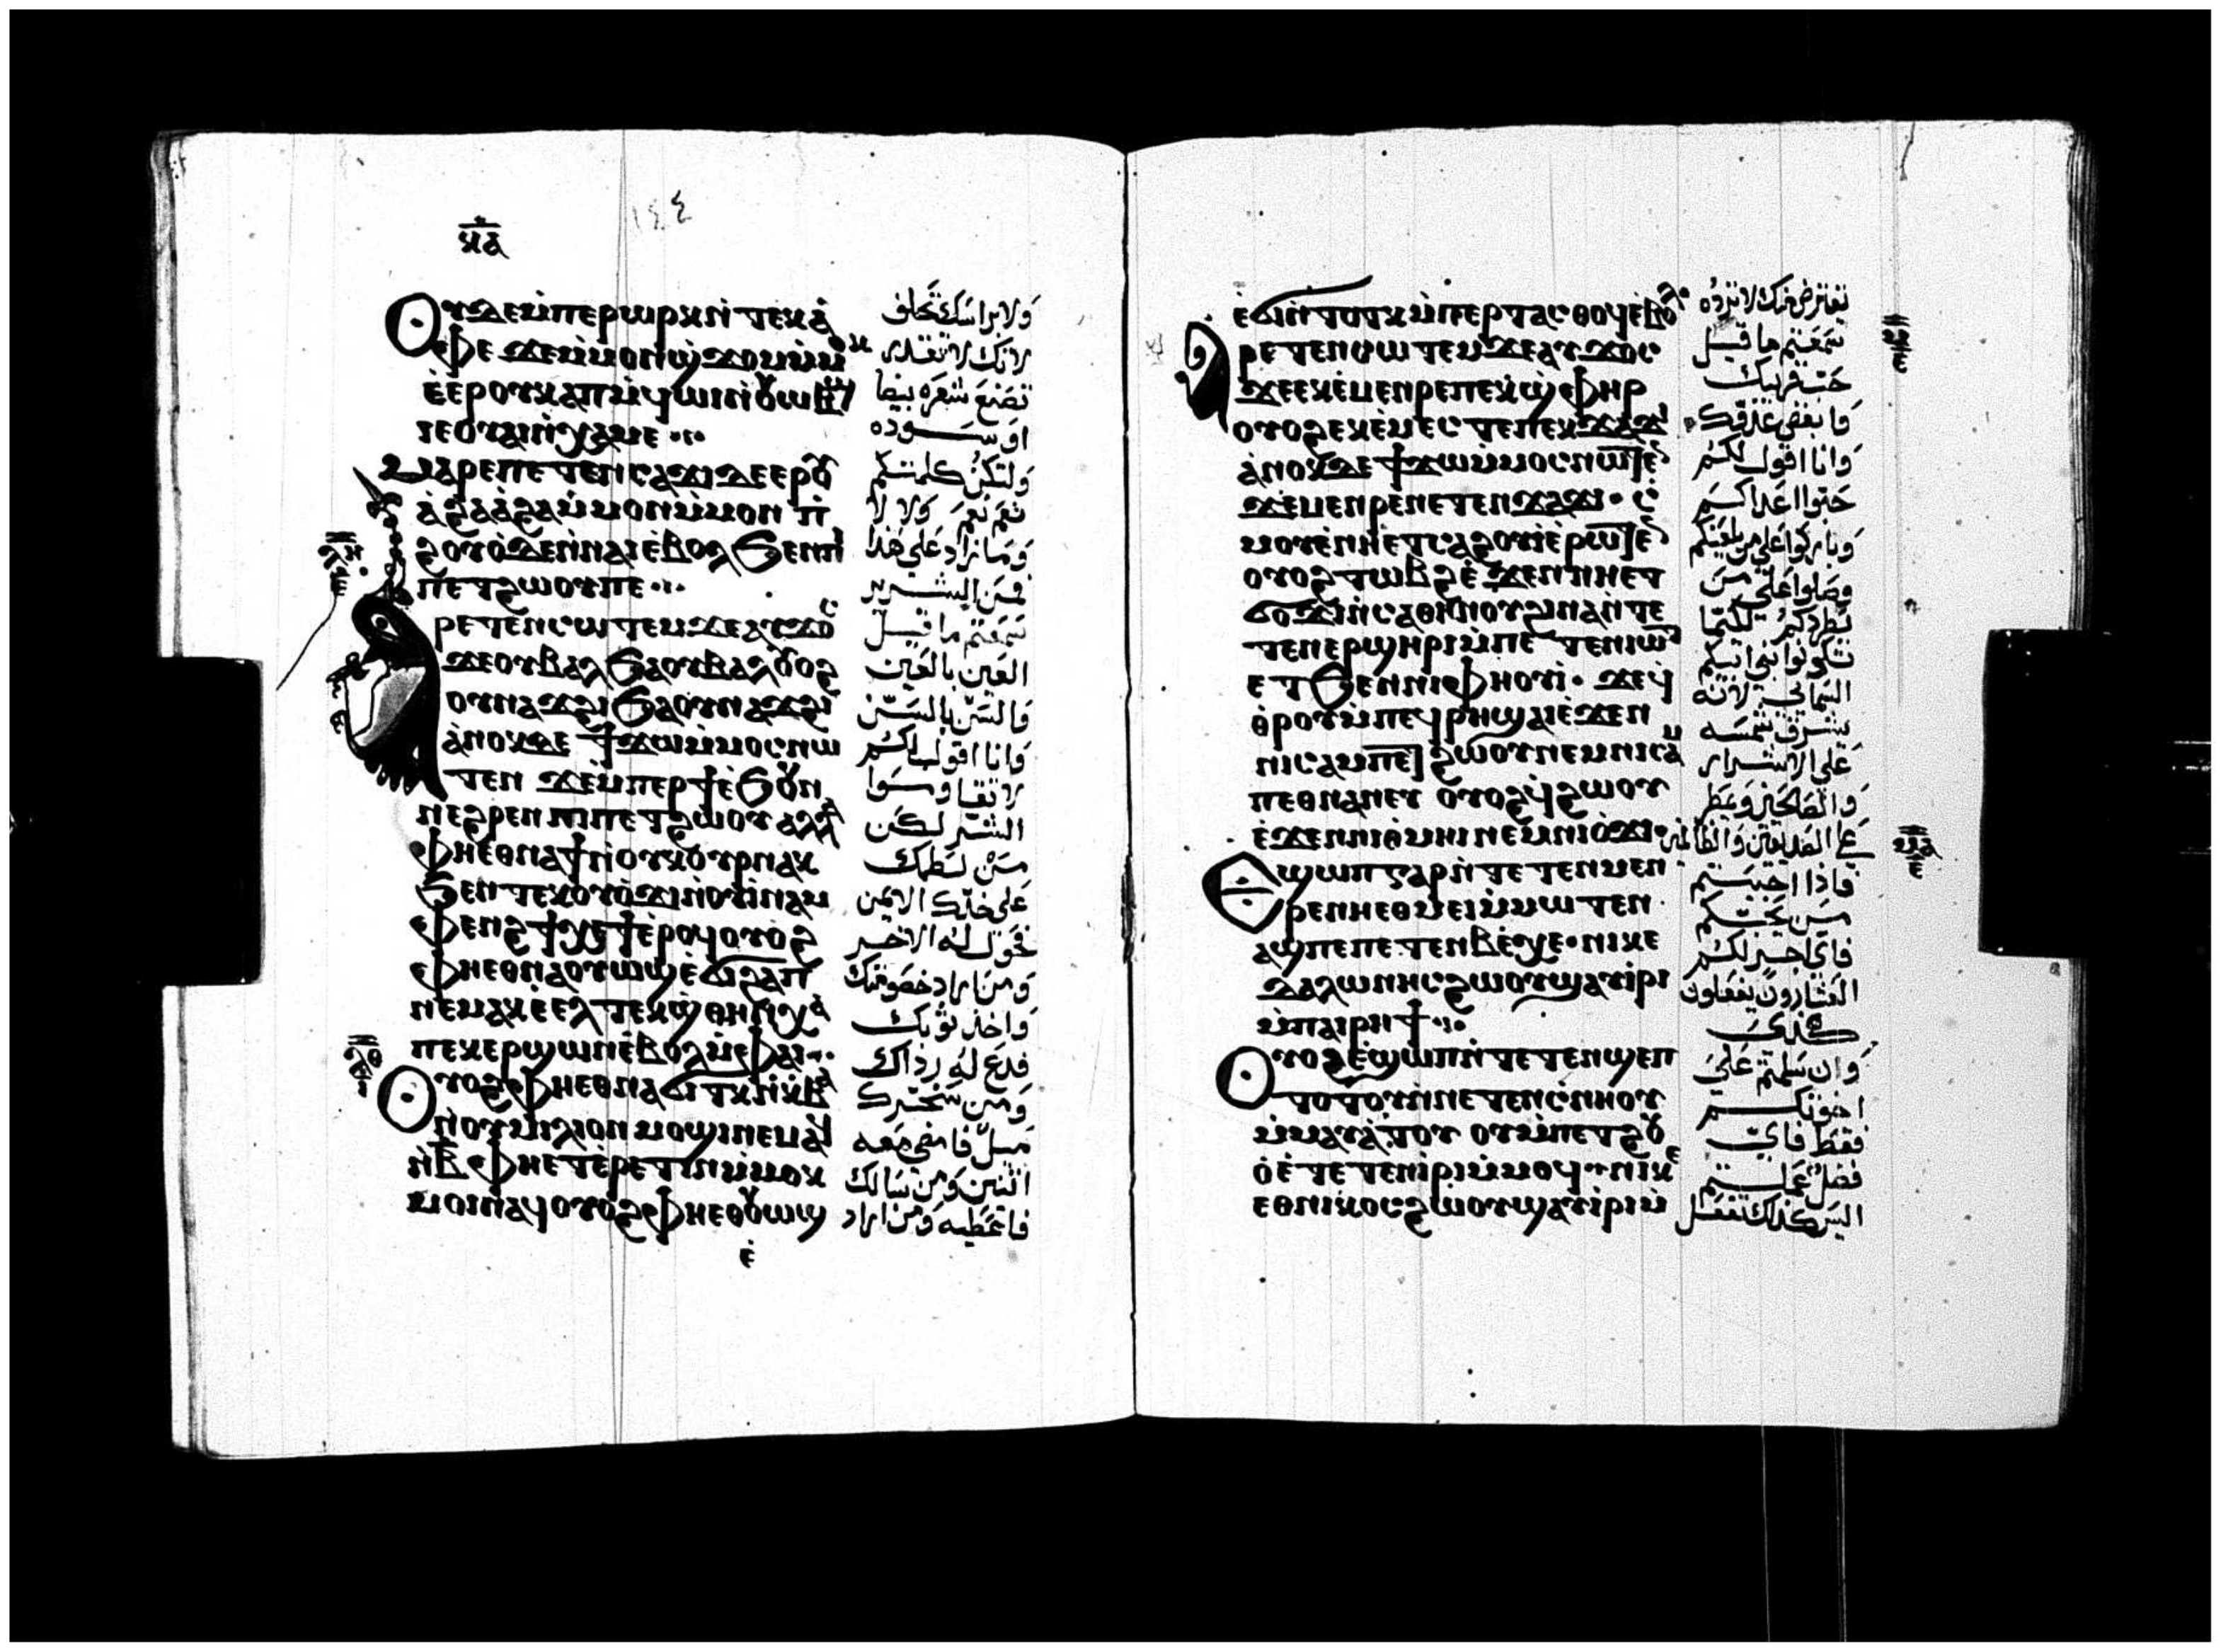 ⲕⲁ
١٤٤
Ⲟⲩⲇⲉ ⲙ̀ⲡⲉⲣⲱⲣⲕ ⲛ̀ⲧⲉⲕⲁ̀
ⲫⲉ ϫⲉ ⲙ̀ⲙⲟⲛ ϣϫⲟⲙ ⲙ̀ⲙⲟⲕ
ⲉ̀ⲉⲣⲟⲩⲕⲁⲡ ⲙ̀ϥⲱⲓ ⲛ̀ⲟⲩⲱⲃϣ
ⲓⲉ ⲟⲩⲁⲓ ⲛ̀ⲭⲁⲙⲉ
Ⲙⲁⲣⲉⲡⲉⲧⲉⲛⲥⲁϫⲓ ⲇⲉ ⲉⲣⲟⲩ
ⲁ̀ϩⲁ ⲁ̀ϩⲁ ⲙ̀ⲙⲟⲛ ⲙ̀ⲙⲟⲛ ⲡ̀
ϩⲟⲩⲟ̀ ⲇⲉ ⲛ̀ⲛⲁⲓ ⲉ̀ⲃⲟⲗ ϧⲉⲛ ⲡⲓ
ⲡⲉⲧϩⲱⲟⲩ ⲡⲉ
ⲗⲏ
ⲉ
Ⲁⲣⲉⲧⲉⲛⲥⲱⲧⲉⲙ ϫⲉ ⲁⲩϫⲟⲥ
ϫⲉ ⲟⲩⲃⲁⲗ ϧⲁ ⲟⲩⲃⲁⲗ ⲟⲩⲟϩ
ⲟⲩⲛⲁϫϩⲓ ϧⲁ ⲟⲩⲛⲁϫϩⲓ
ⲁ̀ⲛⲟⲕ ⲇⲉ ϯϫⲱ ⲙ̀ⲙⲟⲥ ⲛⲱ
ⲧⲉⲛ ϫⲉ ⲙ̀ⲡⲉⲣϯ ⲉ̀ϧⲟⲩⲛ
ⲛⲉϩⲣⲉⲛ ⲡⲓⲡⲉⲧϩⲱⲟⲩ ⲁⲗⲗⲁ
ⲫⲏⲉⲑⲛⲁϯ ⲛ̀ⲟⲩⲕⲟⲩⲣ ⲛⲁⲕ
ϧⲉⲛ ⲧⲉⲕⲟⲩⲟ̀ϫⲓ ⲛ̀ⲟⲩⲓ̀ⲛⲁⲙ
ⲫⲉⲛϩ ϯⲭⲉϯ ⲉ̀ⲣⲟϥ ⲟⲩⲟϩ
ⲫⲏⲉⲑⲛⲁⲟⲩⲱϣ ⲉ̀ϭⲓϩⲁⲡ
ⲛⲉⲙⲁⲕ ⲉ̀ⲉⲗ ⲧⲉⲕϣⲑⲏⲛ ⲭⲁ
ⲡⲉⲕⲉⲣϣⲱⲛ ⲉ̀ⲃⲟⲗ ⲙ̀ⲫⲁⲓ
ⲗⲑ
Ⲟⲩⲟϩ ⲫⲏⲉⲑⲛⲁϭⲓⲧⲕ ⲛ̀ⲭⲃⲁ
ⲛ̀ⲟⲩⲙⲓⲗⲓⲟⲛ ⲙⲟϣⲓ ⲛⲉⲙⲁϥ
ⲛ̀ⲃ ⲫⲏⲉⲧⲉⲣⲉⲧⲓⲛ ⲙ̀ⲙⲟⲕ
ⲙⲟⲓ ⲛⲁϥ ⲟⲩⲟϩ ⲫⲏⲉⲑⲟⲩⲱϣ
ⲉ̀
ولا براسك تحلف
لانك لا تقدر
تصنع شعره بيضا
او سوده
ولتكن كلمتكم
نعم نعم ولا لا
وما زاد على هذا
فمن الشرير
سمعتم ما قيل
العين بالعين
والسن بالسن
وانا اقول لكم
لا تقاوموا
الشر لكن
من لطمك
على خدك الايمن
فحول له الاخر
ومن اراد خصومتك
واخذ ثوبك
فدع له رداك
ومن سخرك
ميل فامضى معه
اثنين ومن سالك
فاعطيه ومن اراد
ⲉ̀ϭⲓ ⲛ̀ⲧⲟⲧⲕ ⲙ̀ⲡⲉⲣⲧⲁⲥⲑⲟϥ ⲉ̀ⲃⲟⲗ
Ⲁⲣⲉⲧⲉⲛⲥⲱⲧⲉⲙ ϫⲉ ⲁⲩϫⲟⲥ
ϫⲉ ⲉⲕⲉ̀ⲙⲉⲛⲣⲉ ⲡⲉⲕϣⲫⲏⲣ
ⲟⲩⲟϩ ⲉⲕⲉ̀ⲙⲉⲥⲧⲉ ⲡⲉⲕϫⲁϫⲓ
ⲁ̀ⲛⲟⲕ ⲇⲉ ϯϫⲱ ⲙ̀ⲙⲟⲥ ⲛⲱⲧⲉⲛ
ϫⲉ ⲙⲉⲛⲣⲉ ⲛⲉⲧⲉⲛϫⲁϫⲓ ⲥ̀
ⲙⲟⲩ ⲉ̀ⲛⲏⲉⲧⲥⲁϩⲟⲩⲓ ⲉ̀ⲣⲱⲧⲉⲛ
ⲟⲩⲟϩ ⲧⲱⲃϩ ⲉ̀ϫⲉⲛ ⲛⲏⲉⲧ
ϭⲟϫⲓ ⲛ̀ⲥⲁⲑⲏⲛⲟⲩ ϩⲓⲛⲁ ⲛ̀ⲧⲉ
ⲧⲉⲛⲉⲣϣⲏⲣⲓ ⲙ̀ⲡⲉⲧⲉⲛⲓⲱⲧ
ⲉⲧϧⲉⲛ ⲛⲓⲫⲏⲟⲩⲓ ϫⲉ ϥ
ⲑⲣⲟ ⲙ̀ⲡⲉϥⲣⲏ ϣⲁⲓ ⲉ̀ϫⲉⲛ
ⲛⲓⲥⲁⲙⲡⲉⲧϩⲱⲟⲩ ⲛⲉⲙ ⲛⲓⲥⲁⲙ
ⲡⲉⲑⲛⲁⲛⲉⲩ ⲟⲩⲟϩ ϥϩⲱⲟⲩ
ⲉ̀ϫⲉⲛ ⲛⲓⲑⲙⲏⲓ ⲛⲉⲙ ⲛⲓⲟ̀ϫⲓ
Ⲉϣⲱⲡ ⲅⲁⲣ ⲛ̀ⲧⲉⲧⲉⲛⲙⲉⲛ
ⲣⲉ ⲛⲏⲉⲑⲙⲉⲓ ⲙ̀ⲙⲱⲧⲉⲛ
ⲁϣ ⲡⲉ ⲡⲉⲧⲉⲛⲃⲉⲭⲉ ⲛⲓⲕⲉ
ⲇⲁⲗⲱⲛⲏⲥ ϩⲱⲟⲩ ϣⲁⲩⲓ̀ⲣⲓ
ⲙ̀ⲡⲁⲓⲣⲏϯ
Ⲟⲩⲟϩ ⲉ̀ϣⲱⲡ ⲛ̀ⲧⲉⲧⲉⲛϣⲉⲡ
ⲧⲟⲧⲟⲩ ⲛ̀ⲛⲉⲧⲉⲛⲥ̀ⲛⲏⲟⲩ
ⲙ̀ⲙⲁⲩⲁ̀ⲧⲟⲩ ⲟⲩ ⲙ̀ⲡⲉⲧϩⲟⲩ
ⲟ̀ ⲉ̀ⲧⲉⲧⲉⲛⲓⲣⲓ ⲙ̀ⲙⲟϥ ⲛⲓⲕⲉ
ⲉⲑⲛⲓⲕⲟⲥ ϩⲱⲟⲩ ϣⲁⲩⲓ̀ⲣⲓ ⲙ̀
يقترض منك لا ترده
سمعتم ما قيل
حب قريبك
وابغض عدوك
وانا اقول لكم
حبوا اعداكم
وباركوا على من يلعنكم
وصلوا على من
يطردكم لكيما
تكونوا بني ابيكم
السماى لانه
يشرق شمسه
على الاشرار
والصالحين ويمطر
على الصديقين والظالمين
فاذا احببتم
من يحبكم
فاى اجر لكم
العشارون يفعلون
كذلك
وان سلمتم على
اخوتكم
فقط فاى
فضل عملتم
اليس كذلك تفعل
ⲙ
ⲉ
ⲙⲁ
ⲉ